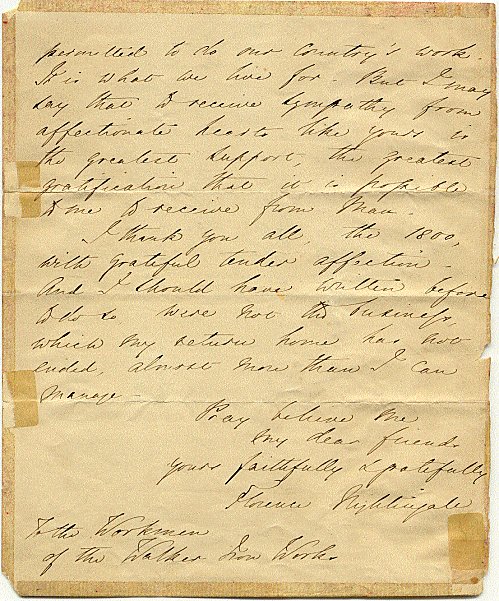 permitted to do our Country's work.
It is what we live for - But I may
say that to receive sympathy from
affectionate hearts like yours is
the greatest support, the greatest
gratification that it is possible
to me to receive from man.
I thank you all, the 1800,
with grateful tender affection.
And I should have written before
to do so were not the business,
which my return home has not
ended, almost more than I can
manage -
Pray believe me
my dear friends
yours faithfully & gratefully
Florence Nightingale
To the Workmen
of the Walker Iron Works